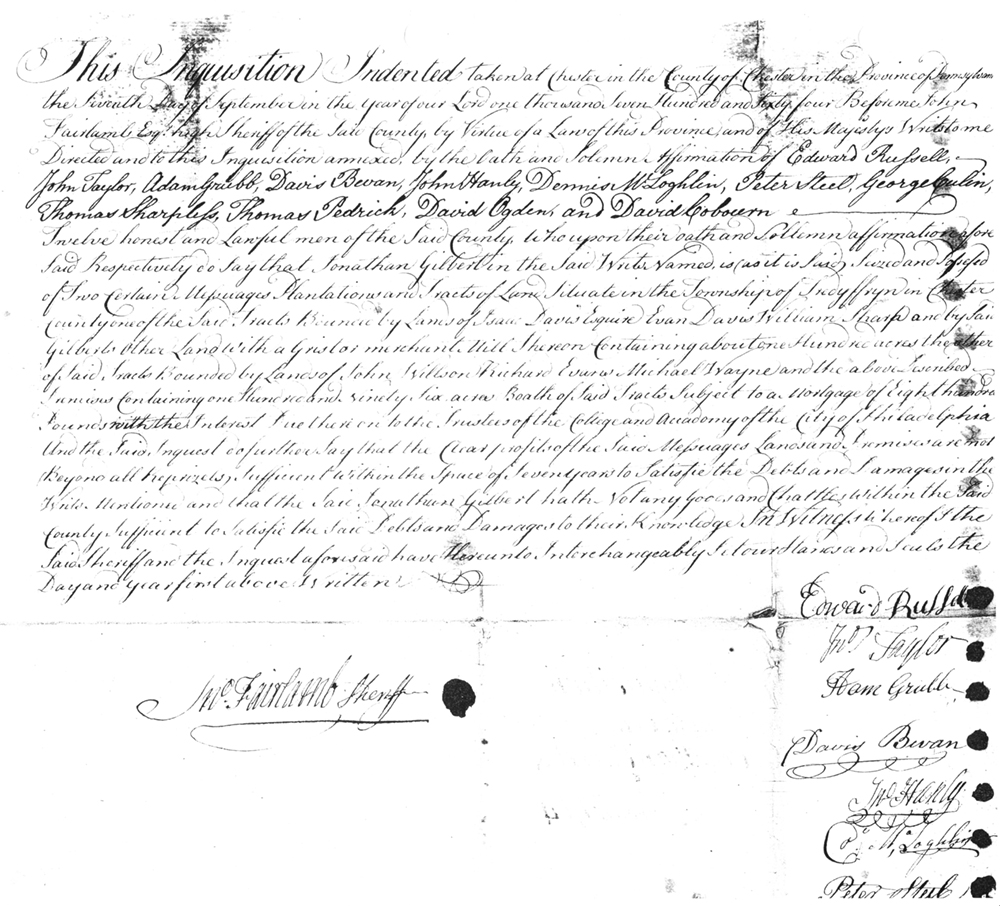 This Inquisition Indented taken at Chester in the County of Chester in the Province of Pennsylvan
the Seventh Day of September in the Year of our Lord one thousand Seven Hundred and Sixty four Before me John
Fairlamb Esqr. high Sheriff of the Said County, by Virtue of a Law of this Province, and of His Majestys Writs to me
Directed and to this Inquisition annexed, by the Oath and Solemn Affirmation of Edward Russell,
John Taylor, Adam Grubb, Davis Bevan, John Hanly, Dennis McLoghlin, Peter Steel, George Culin,
Thomas Sharpless, Thomas Pedrick, David Ogden, and David Cobourn
Twelve honest and Lawful men of the Said County, Who upon their oath and Solemn affirmation afore
Said Respectively do Say that Jonathan Gilbert in the Said Writs Named, is (as it is Said) Siezed and
of Two Certain Messuages Plantations and Tracts of Land Situate in the Township of Tredyffryn in Chester
County one of the Said Tracts Bounded by Lands of Isaac Davis Esquire Evan Davis William Sharp and by Said
Gilberts Other Land with a Grist or merchant Mill Thereon Containing about one Hundred acres the other
of Said Tracts Bounded by Lands of John Willson Richard Evans Michael Wayne and the above
Containing one Hundred and Ninety Six acres Boath of Said Tracts Subject to a Mortgage of Eight hundred
Pounds with the Interest Due thereon to the Trustees of the College and Accadomy of the City of Philadelphia
And the Said Inquest do further Say that the Clear profits of the Said Messuages Lands and Premises are not
(Beyond all Reprizels) Sufficient Within the Space of Seven years to Satisfie the Debts and Damages in the
Writs Mentioned and that the Said Jonathan Gilbert hath Not any Goods and Chattles within the Said
County Sufficient to Satisfie the Said Debts and Damages to their Knowledge In Witness Whereof I the
Said Sheriff and the Inquest aforesaid have Hereunto Interchangeably Set our Hands and Seals the
Day and year first above Written
Edward Russell
Jno. Taylor
Adam Grubb
Jno. Fairlamb Sheriff
Davis Bevan
Jno. Hanly
McLoghlin
Peter Steel